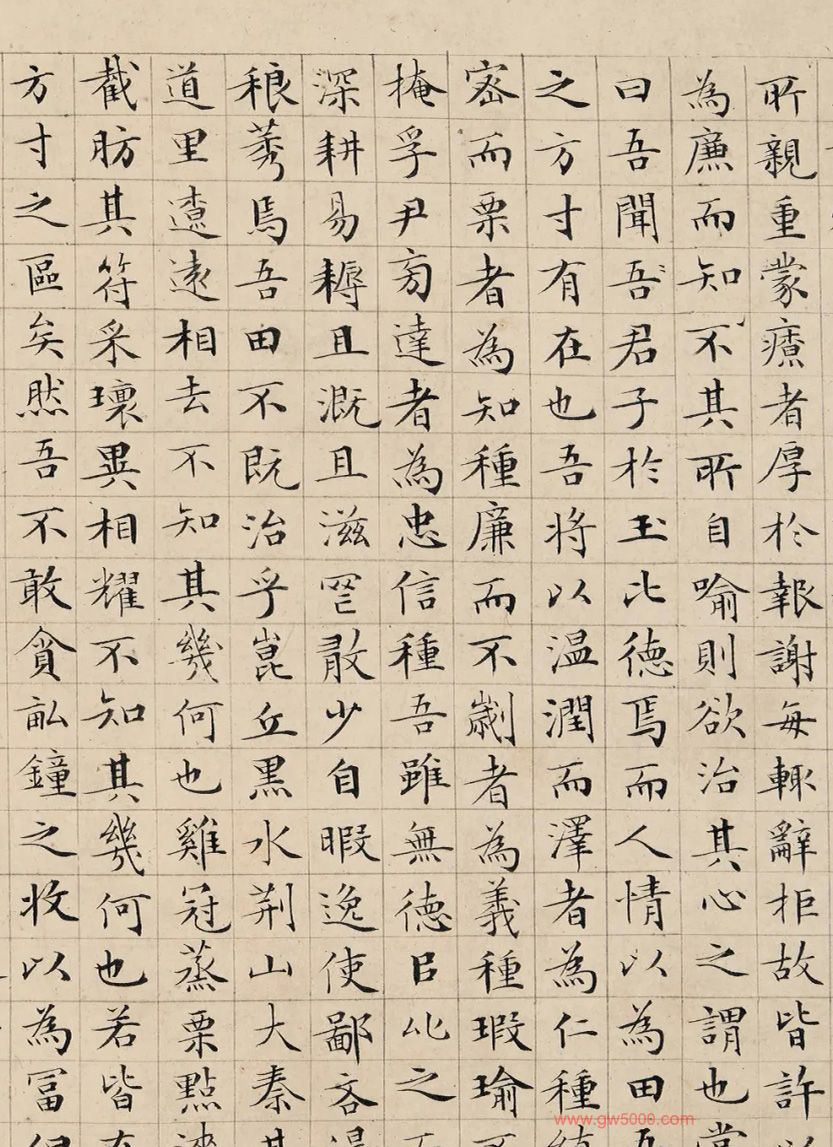 所親重蒙療者厚於報謝每輙辭拒故皆許
為廉而知不其所自喻則欲治其心之謂也
曰吾聞吾君子於玉比德焉而人情以為田
之方寸有在也吾將以温潤而澤者為仁種
密而栗者為知種廉而不劌者為義種瑕瑜
掩孚尹旁達者為忠信種吾雖無德㠯此之
深耕易耨且溉且滋罔敢少自暇逸使鄙吝
稂莠焉吾田不既治乎崑丘黑水荆山大秦
道里遼遠相去不知其幾何也雞冠蒸栗點
截肪其符采瓌異相耀不知其幾何也若皆
方寸之區矣然吾不敢貪畝鐘之收以為富
www.gw5000.com